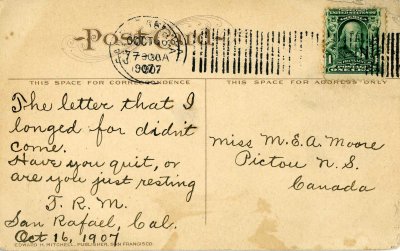 Post Card
OCT 16
7-30A
1907
THIS SPACE FOR CORRESPONDENCE
THIS SPACE FOR ADDRESS ONLY
The letter that I
longed for didn't
come.
Have you quit, or
are you just resting
T. R. M.
San Rafael, Cal.
Oct 16, 1907
Miss M. E. A. Moore
Pictou N. S.
Canada
EDWARD H. MITCHELL, PUBLISHER, SAN FRANCISCO.